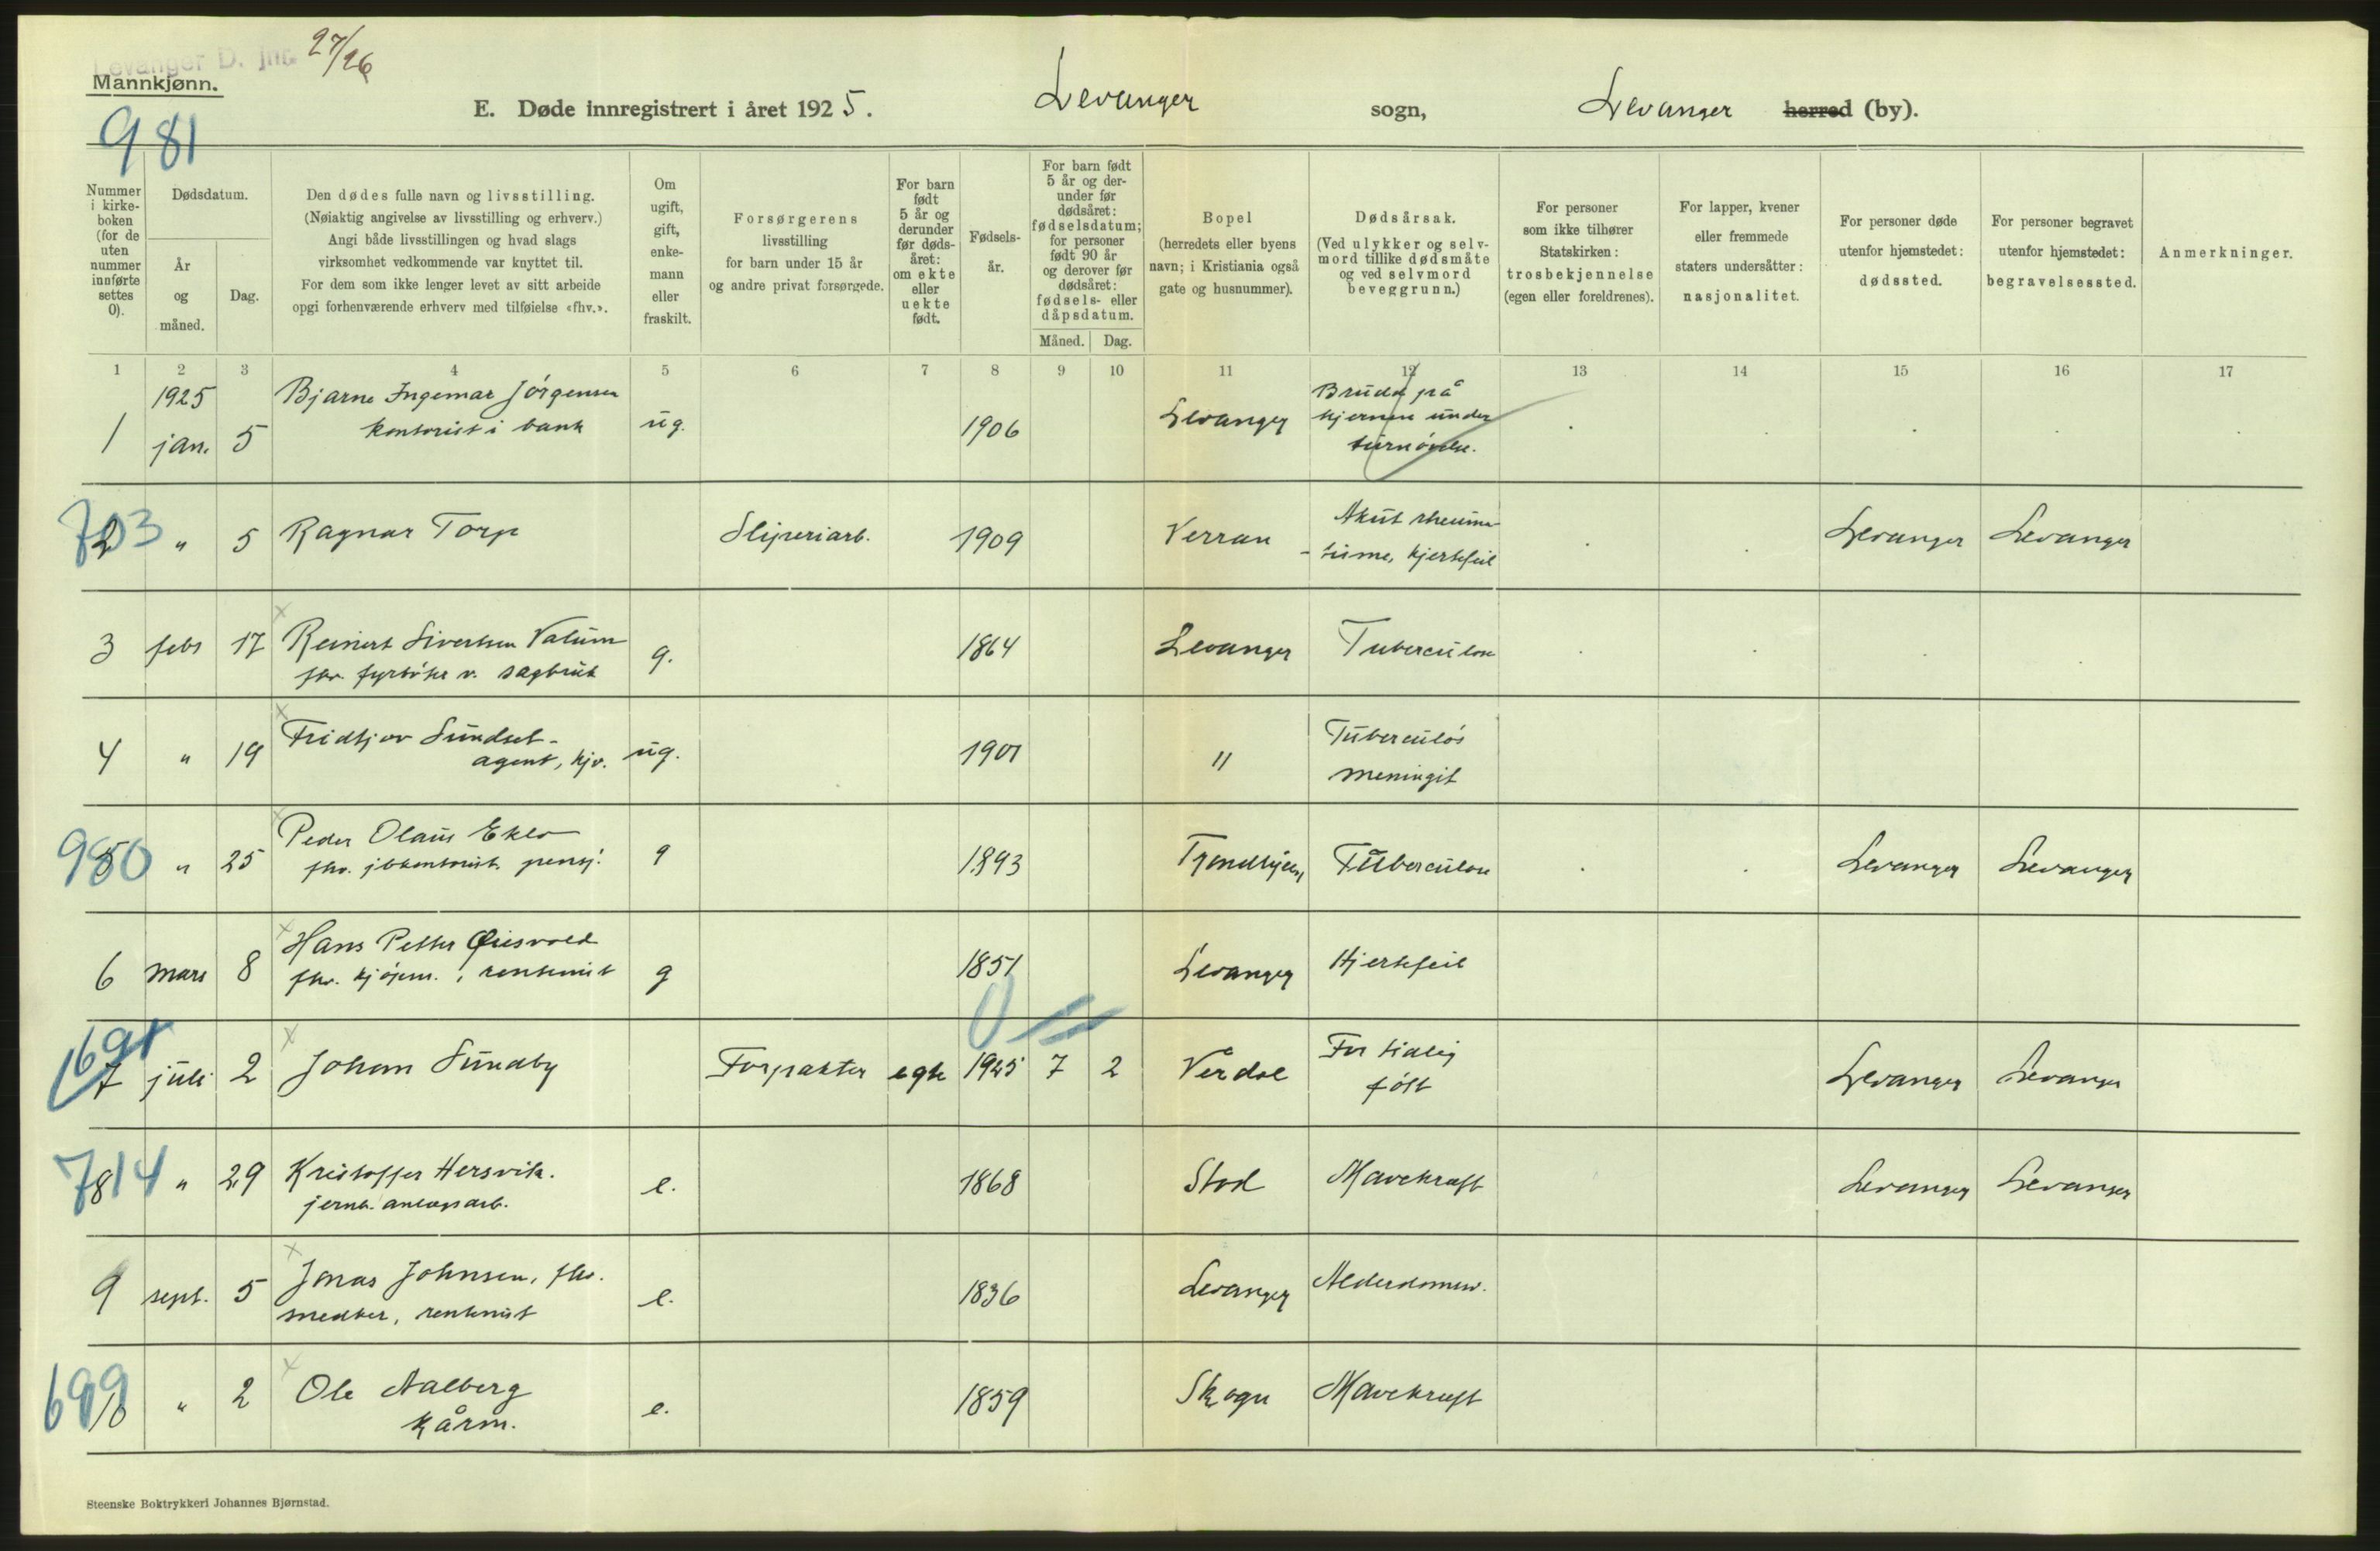 Levanger D. jnr. 27/26
Mannkjønn.
981
E. Døde innregistrert i året 1925. Levanger sogn, Levanger herred (by).
Nummer i kirkeboken (for de uten nummer innførte settes 0).
Dødsdatum.
År og måned.
Dag.
Den dødes fulle navn og livsstilling.
(Nøiaktig angivelse av livsstilling og erhverv.)
Angi både livsstillingen og hvad slags
virksomhet vedkommende var knyttet til.
For dem som ikke lenger levet av sitt arbeide
opgi forhenværende erhverv med tilføielse «fhv.».
Om ugift, gift, enkemann eller fraskilt.
Forsørgerens
livsstilling
for barn under 15 år
og andre privat forsørgede.
For barn født 5 år og derunder før dødsåret: om ekte eller uekte født.
Fødselsår.
For barn født 5 år og derunder før dødsåret: fødselsdatum; for personer født 90 år og derover før dødsåret: fødsels- eller dåpsdatum.
Måned. Dag.
Bopel
(herredets eller byens
navn; i Kristiania også
gate og husnummer).
Dødsårsak.
(Ved ulykker og selvmord tillike dødsmåte og ved selvmord beveggrunn.)
For personer
som ikke tilhører
Statskirken:
trosbekjennelse
(egen eller foreldrenes).
For lapper, kvener
eller fremmede
staters undersåtter:
nasjonalitet.
For personer døde
utenfor hjemstedet:
dødssted.
For personer begravet
utenfor hjemstedet:
begravelsessted.
Anmerkninger.
1 2 3 4 5 6 7 8 9 10 11 12 13 14 15 16 17
1 1925 jan. 5 Bjarne Ingemar Jörgensen
kontorist i bank ug. 1906 Levanger Brudd på
hjernen under
turnövelse.
703
2 " 5 Ragnar Torp Sliperiarb. 1909 Verran Akut rheuma-
tisme, hjertefeil Levanger Levanger
3 febr 17 Reinert Sivertsen Valum
fhv. fyrböter v. sagbruk g. 1864 Levanger Tuberculose
4 " 19 Fridtjov Sundset
agent, hjv. ug. 1901 " Tuberculös
meningit
980
5 " 25 Peder Olaus Eklo
fhv. jbkontorist. pensj. g 1893 Trondhjem Tuberculose Levanger Levanger
6 mars 8 Hans Petter Øiesvold
fhv. kjöpm., rentenist g 1851 Levanger Hjertefeil
0
1691
7 juli 2 Johan Sundby Forpakter egte 1925 7 2 Verdal For tidlig
født Levanger Levanger
714
8 " 29 Kristoffer Hersvik.
jernb. anlægsarb. e. 1868 Stod Mavekræft Levanger Levanger
9 sept. 5 Jonas Johnsen, fhv.
snedker, rentenist e. 1836 Levanger Alderdomssv.
699
10 " 2 Ole Aalberg
kårm. e. 1859 Skogn Mavekræft
Steenske Boktrykkeri Johannes Bjørnstad.